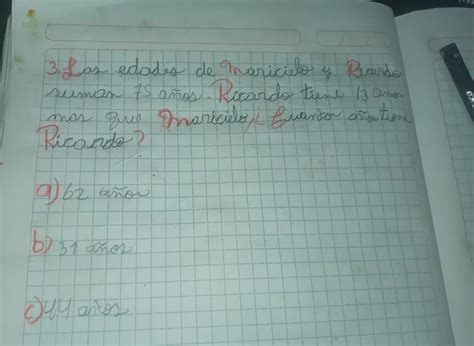 3. Las edades de Maricielo y Ricardo
suman 75 años. Ricardo tiene 13 años
mas que Maricielo ¿ Cuantos años tiene
Ricardo?
a) 62 años
b) 31 años
c) 44 años